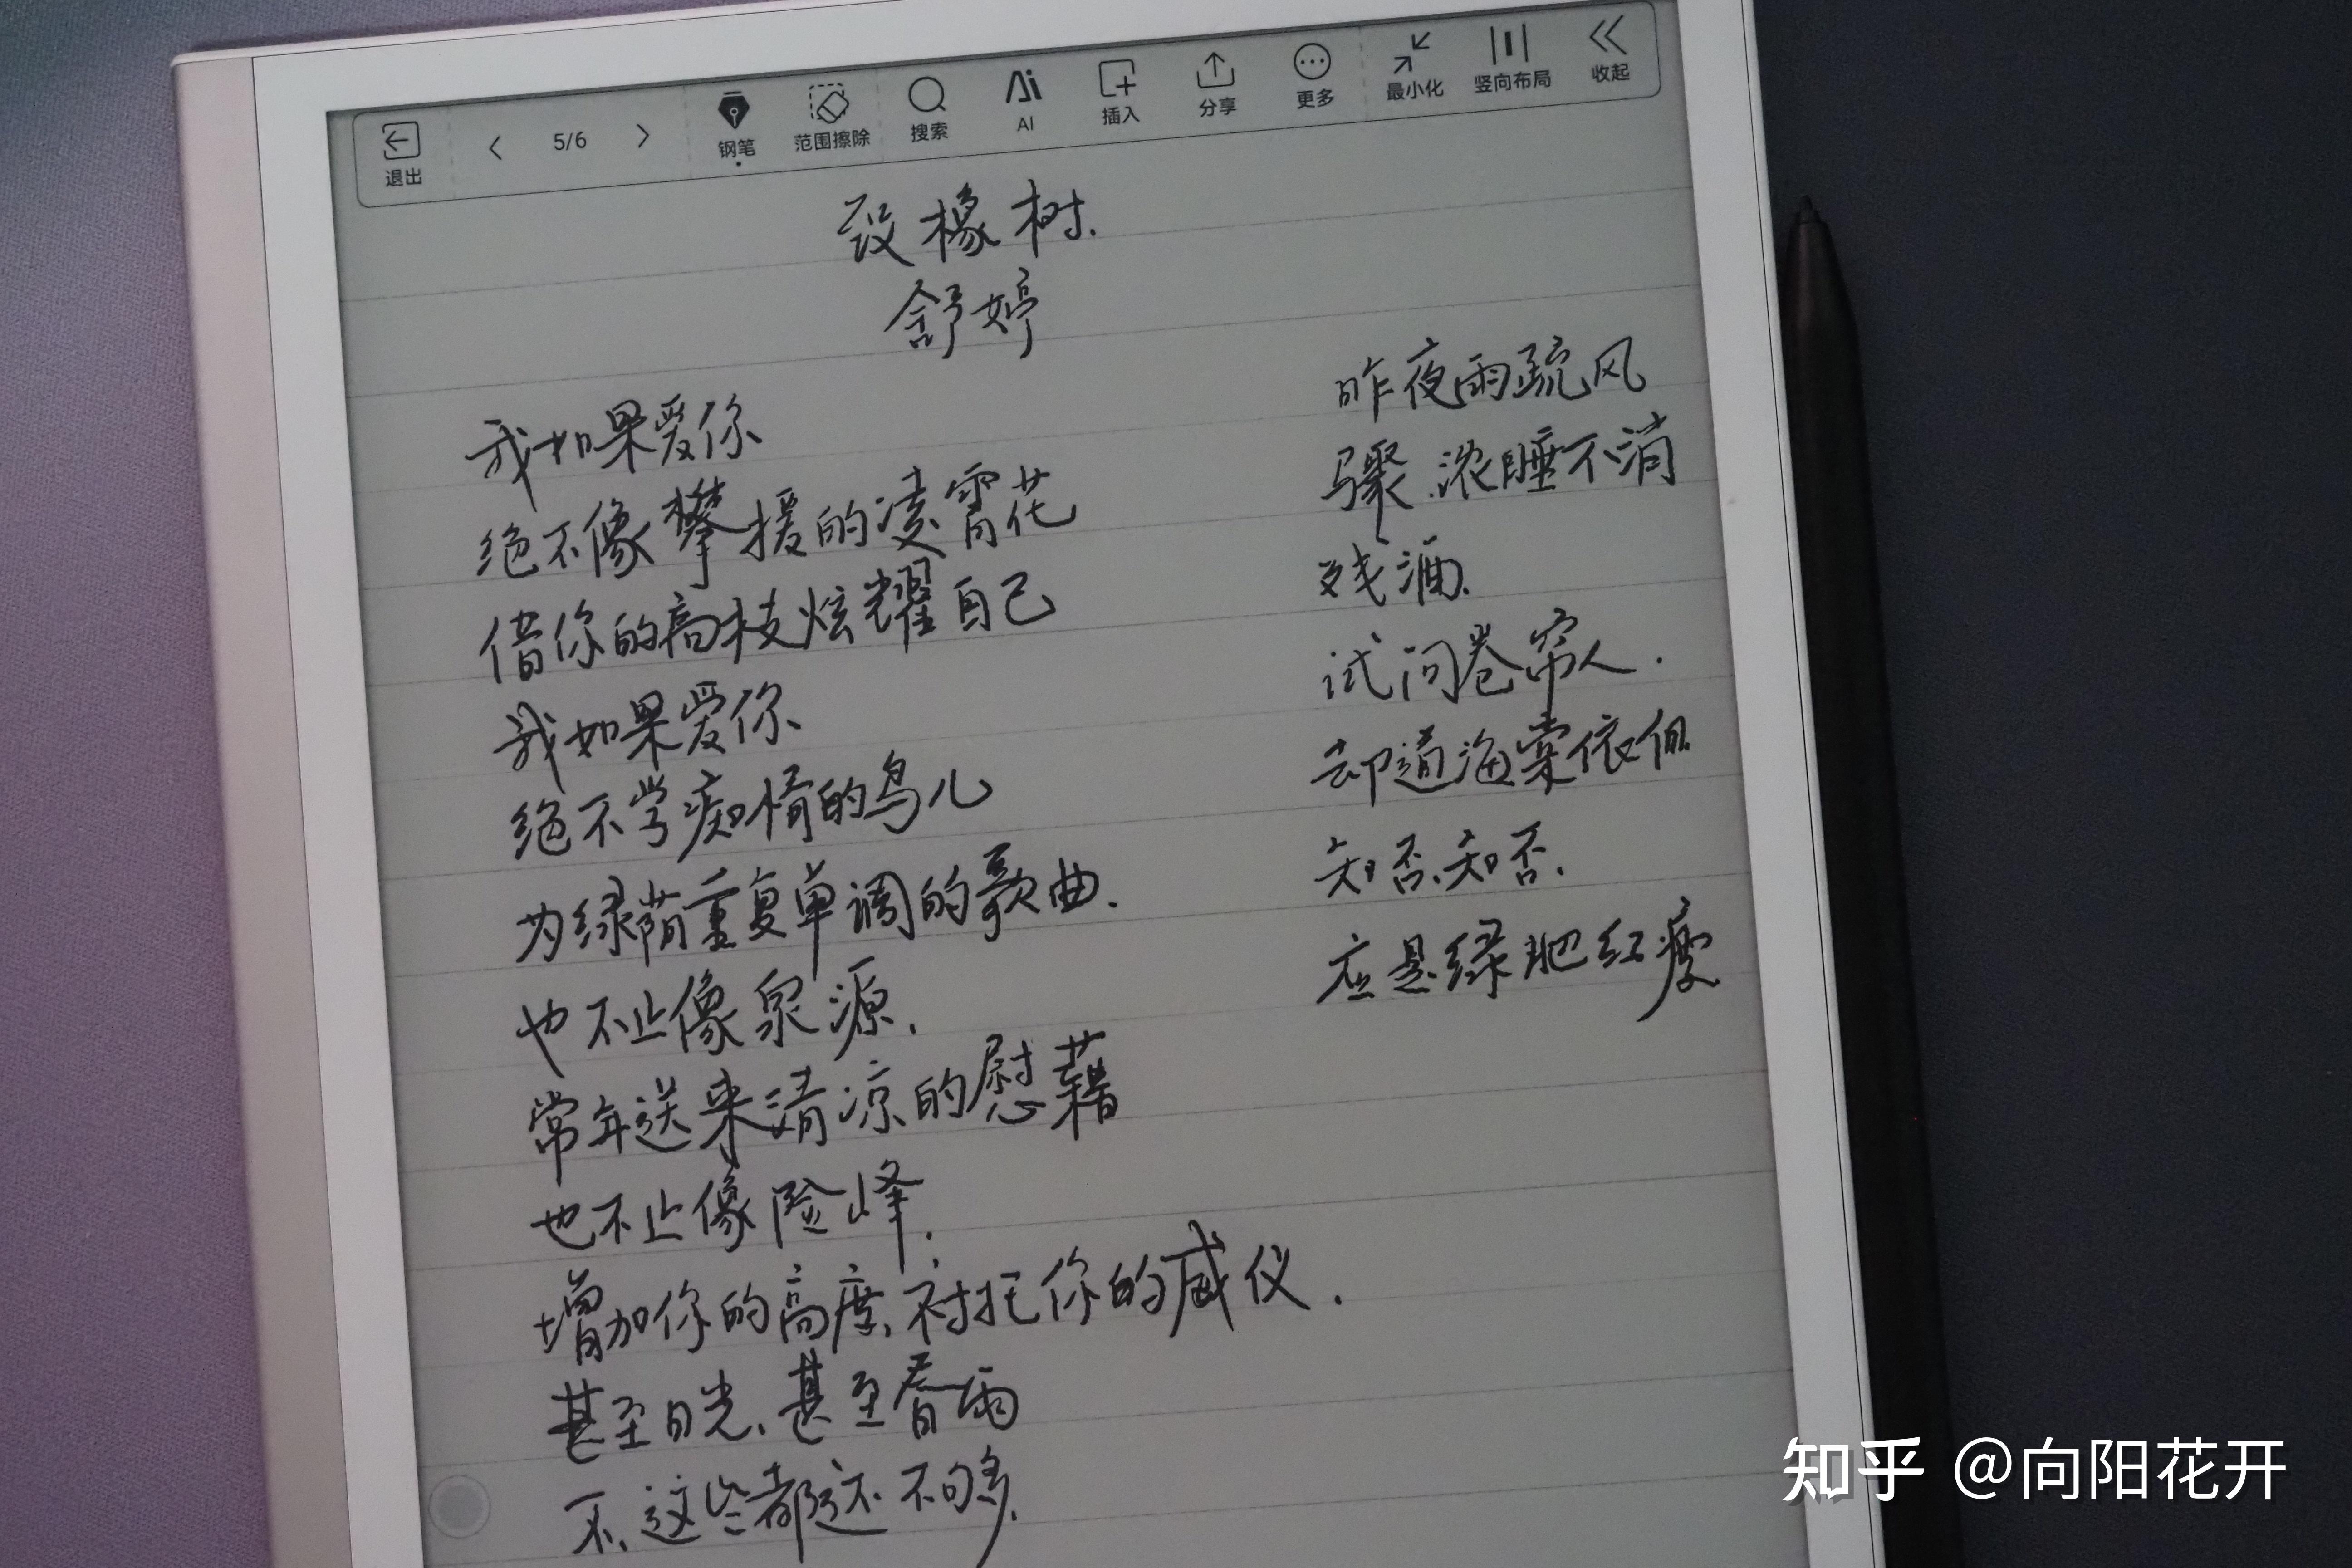 退出
5/6
钢笔
范围擦除
搜索
AI
插入
分享
更多
最小化
竖向布局
收起
致橡树.
舒婷
我如果爱你
绝不像攀援的凌霄花
借你的高枝炫耀自己
我如果爱你
绝不学痴情的鸟儿
为绿荫重复单调的歌曲.
也不止像泉源,
常年送来清凉的慰藉
也不止像险峰,
增加你的高度,衬托你的威仪.
甚至日光,甚至春雨
不,这些都还不够,
昨夜雨疏风
骤,浓睡不消
残酒.
试问卷帘人.
却道海棠依旧
知否,知否.
应是绿肥红瘦
知乎 @向阳花开